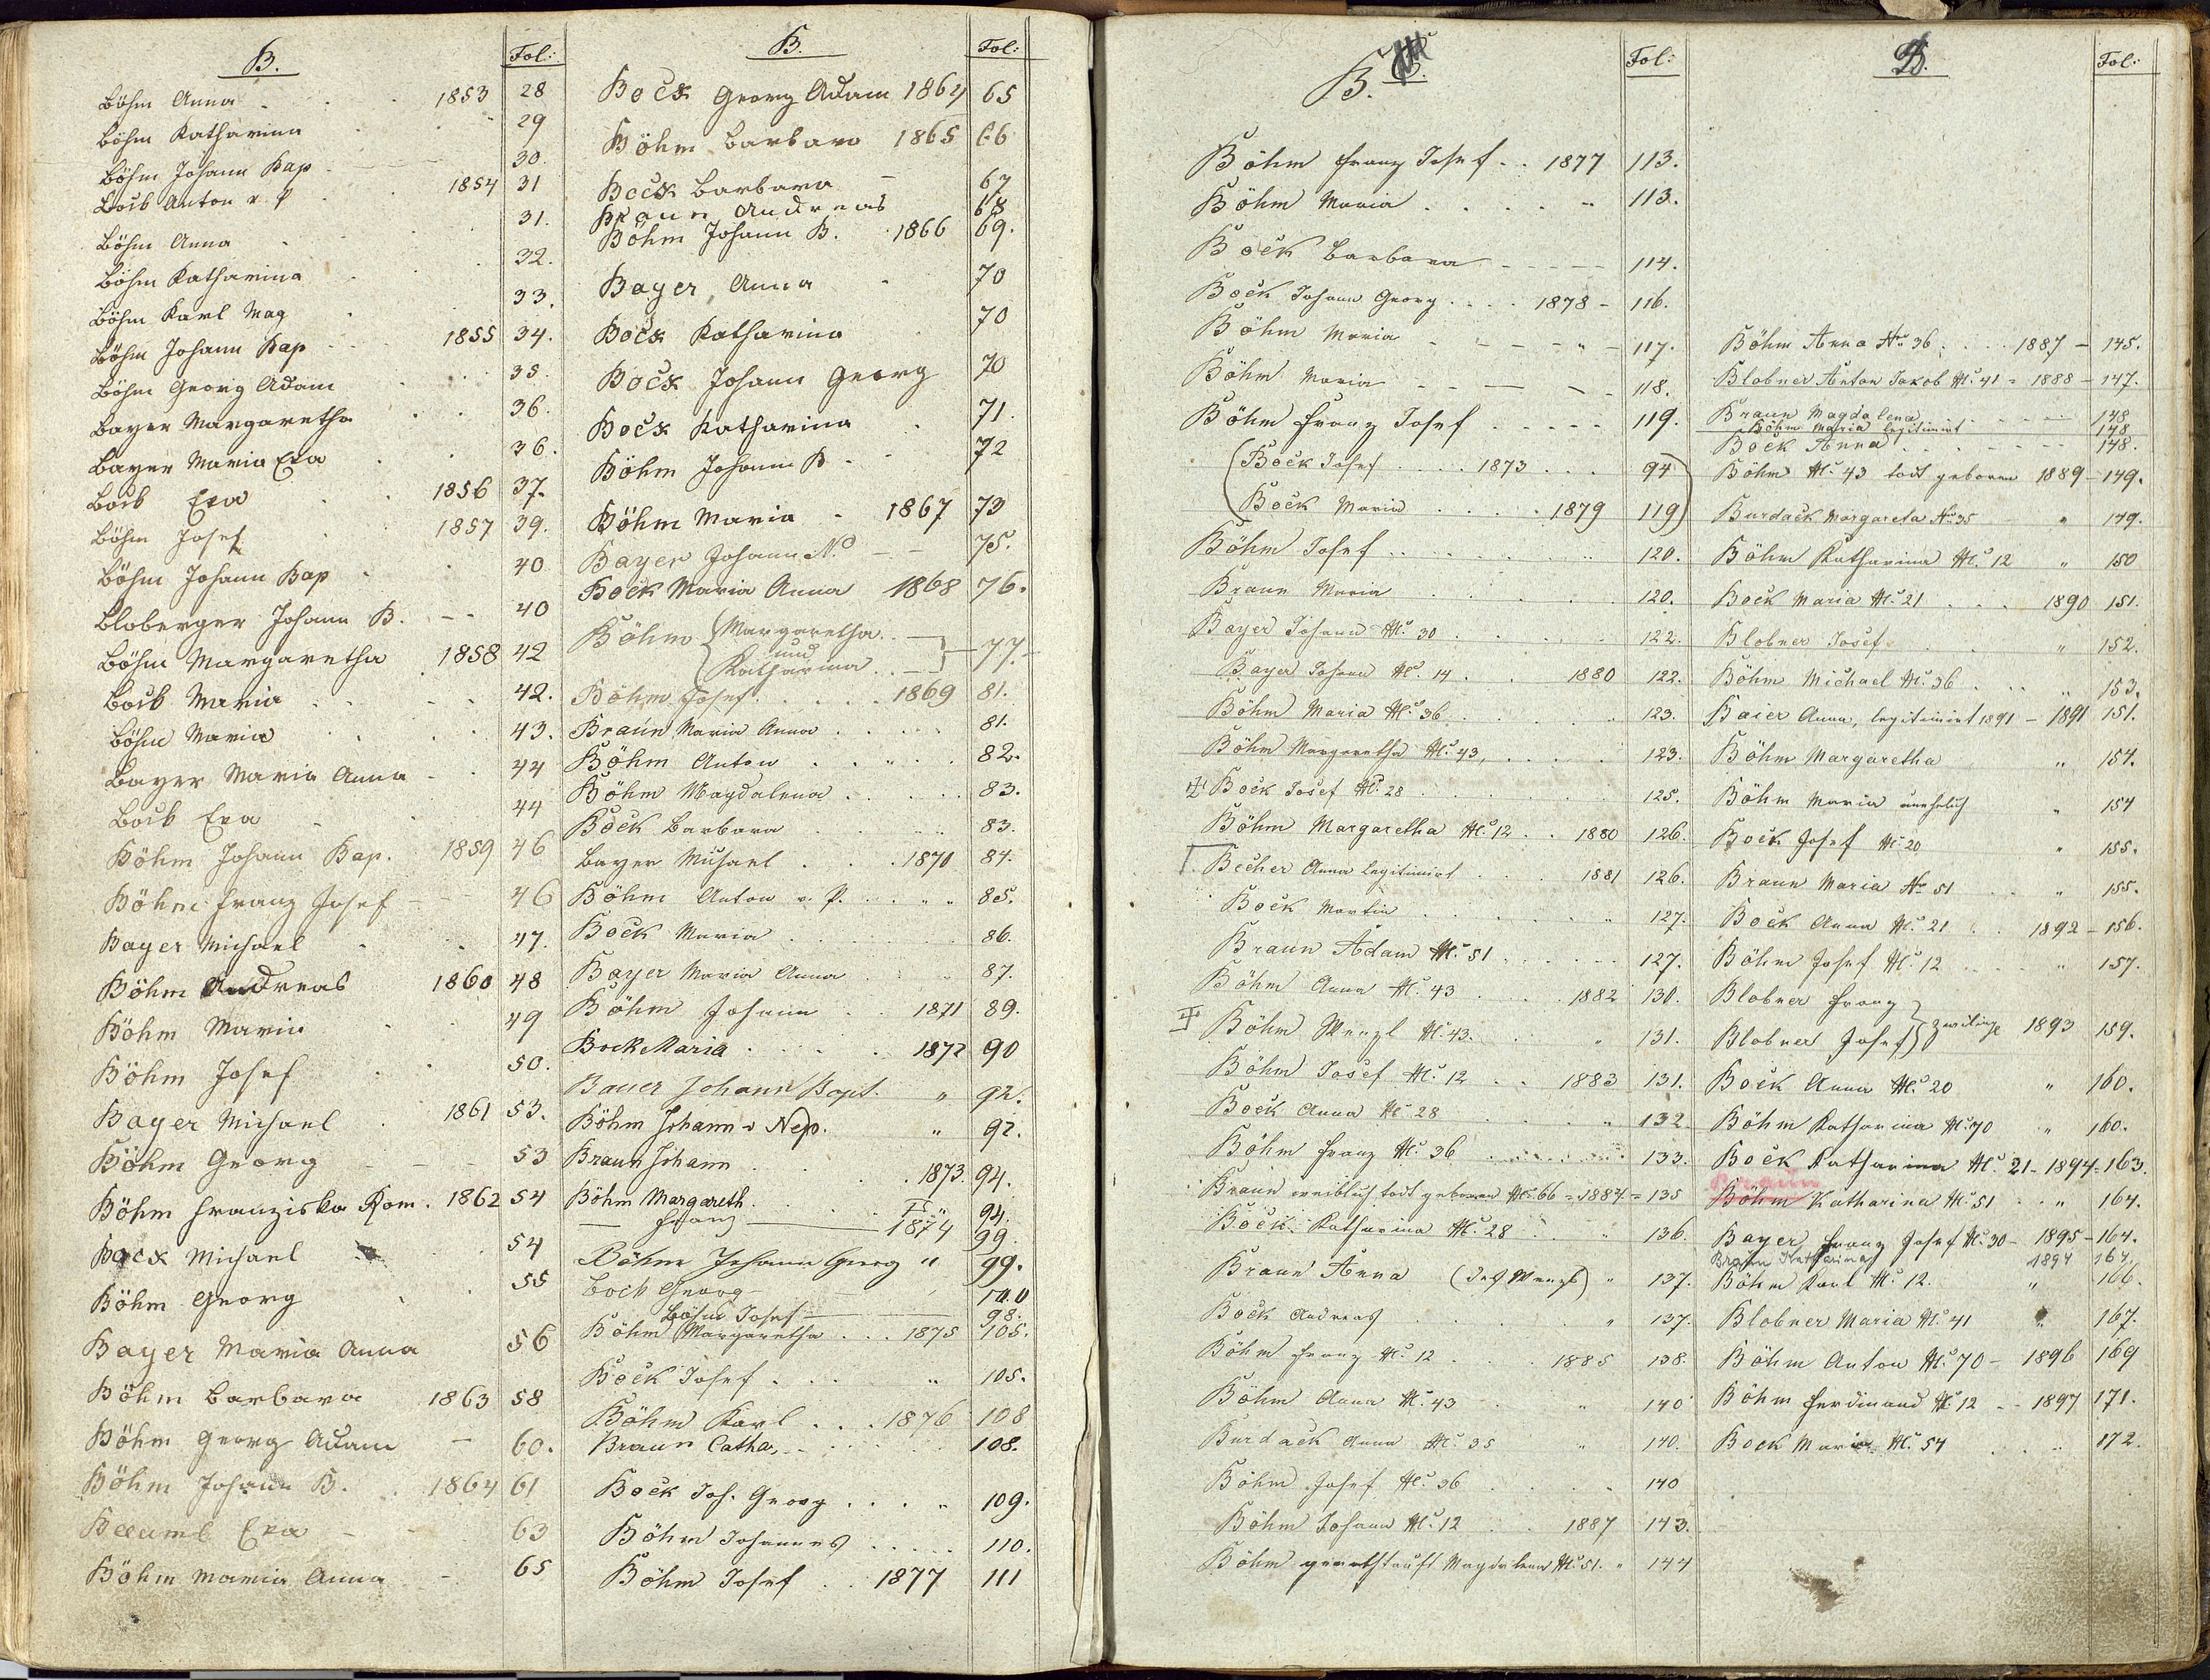 B. Fol:
Böhm Anna . . . 1853 28
Böhm Katharina . " 29
Böhm Johann Bap - 30.
Bock Anton v. P . 1854 31
Böhm Anna . . 31.
Böhm Katharina . . 32.
Böhm Karl Mag . 33.
Böhm Johann Bap - - 1855 34.
Böhm Georg Adam . . 35.
Bayer Margaretha . . 36.
Bayer Maria Eva . . 36.
Bock Eva . . 1856 37.
Böhm Josef . 1857 39.
Böhm Johann Bap . . 40
Bloberger Johann B. - - 40
Böhm Margaretha . 1858 42
Bock Maria . . . 42.
Böhm Maria . . . 43.
Bayer Maria Anna - . 44
Bock Eva - . 44
Böhm Johann Bap. 1859 46
Böhm Franz Josef - - 46
Bayer Michael . . 47.
Böhm Andreas 1860 48
Böhm Maria . . 49
Böhm Josef . . 50.
Bayer Michael . 1861 53.
Böhm Georg - - - 53
Böhm Franziska Rom. 1862 54
Bock Michael . . 54
Böhm Georg . . 55
Bayer Maria Anna 56
Böhm Barbara 1863 58
Böhm Georg Adam - 60.
Böhm Johann B. . 1864 61
Beeuml Eva - - 63
Böhm Maria Anna - 65
B. Fol:
Bock Georg Adam 1864 65
Böhm Barbara 1865 66
Bock Barbara - 67
Braun Andreas 68
Böhm Johann B. . 1866 69.
Bayer Anna - 70
Bock Katharina . 70
Bock Johann Georg 70
Bock Katharina . 71.
Böhm Johann B - - 72
Böhm Maria - 1867 73
Bayer Johann N. - - 75.
Bock Maria Anna 1868 76.
Böhm { Margaretha und Katharina } - 77.
Böhm Josef . . . . . 1869 81.
Braun Maria Anna . . . . 81.
Böhm Anton . . " . . 82.
Böhm Magdalena . . . . 83.
Bock Barbara . . . " 83.
Bayer Michael . . . 1870 84.
Böhm Anton v. P. . . . " 85.
Bock Maria . . . . . 86.
Bayer Maria Anna . . " 87.
Böhm Johann . . 1871 89.
Bock Maria . . . . . 1872 90
Bauer Johann Bapt. " 92.
Böhm Johann v Nep. " 92.
Braun Johann . . . . 1873. 94.
Böhm Margareth . . . . " 94.
— Franz — 1874 99.
Böhm Johann Georg " 99.
Bock Georg - 100
Böhm Josef — 98.
Böhm Margaretha . . . 1875 105.
Bock Josef . . . " 105.
Böhm Karl . . . 1876 108
Braun Catha, . . . . . 108.
Bock Joh. Georg . . . " 109.
Böhm Johannes . . . . . 110.
Böhm Josef . . 1877 111
B. Fol:
Böhm Franz Josef . . 1877 113.
Böhm Maria . . . . . " 113.
Bock Barbara - - - - - 114.
Bock Johann Georg . . . . 1878 - 116.
Böhm Maria - - - - " - 117.
Böhm Maria - - — - - 118.
Böhm Franz Josef . . . . . 119.
(Bock Josef . . . . 1873 . . . 94)
(Bock Maria . . . . 1879 119)
Böhm Josef . . . . . . . " 120.
Braun Maria . . . . . . 120.
Bayer Johann No. 30 . . . . . 122.
Bayer Johann No. 14 . . . 1880 122.
Böhm Maria No. 36 . . . . . 123.
Böhm Margaretha No. 43, . . . . 123.
Bock Josef No. 28 . . . . . . 125.
Böhm Margaretha No. 12 . . 1880 126.
Becher Anna legitimirt . . . 1881 126.
Bock Martin . . . . . . " 127.
Braun Adam No. 51 . . . . . . 127.
Böhm Anna No. 43 . . . . 1882 130.
Böhm Wenzl No. 43. . . . " 131.
Böhm Josef No. 12 . . 1883 131.
Bock Anna No. 28 . . . . " 132
Böhm Franz No. 36 . . . . . . 133.
Braun weiblich todt geboren No. 66 = 1884 = 135
Bock Katharina No. 28 . . " 136.
Braun Anna (des Wenzl) " 137.
Bock Andreas . . . . . " 137.
Böhm Franz No. 12 . . . . 1885 138.
Böhm Anna No. 43 . . " 140
Burdack Anna No. 35 " 140.
Böhm Josef No. 36 . . . . . 140
Böhm Johann No. 12 . . 1887 143.
Böhm Magdalena No. 51. " 144
B. Fol:
Böhm Anna No. 36. . . . 1887 - 145.
Blobner Anton Jakob No. 41 = 1888 - 147.
Braun Magdalena . . . - - 148
Böhm Maria legitimirt 148
Bock Anna . . . - - - 148.
Böhm No. 43 todt geboren 1889 - 149.
Burdack Margareta No. 35 " 149.
Böhm Katharina No. 12 " 150
Bock Maria No. 21 . . . 1890 151.
Blobner Josef . . . " 152.
Böhm Michael No. 36 . . . " 153.
Baier Anna, legitimirt 1891 - 1891 151.
Böhm Margaretha " 154.
Böhm Maria unehelich " 154
Bock Josef No. 20 " 155.
Braun Maria No 51 . . " 155.
Bock Anna No. 21 . . 1892 - 156.
Böhm Josef No. 12 . . . . " 157.
Blobner Franz
Blobner Josef } Zwillinge 1893 159.
Bock Anna No. 20 " 160.
Böhm Katharina No. 70 " 160.
Bock Katharina No. 21 - 1894 - 163.
Braun
Böhm Katharina No. 51 . . " 164.
Bayer Franz Josef No. 30 - 1895 - 164.
Braun Katharina 1894 164.
Böhm Karl No. 12. " 166.
Blobner Maria No. 41 " 167.
Böhm Anton No. 70 - 1896 169
Böhm Ferdinand No. 12 - - 1897 171.
Bock Maria No. 54 . . " 172.